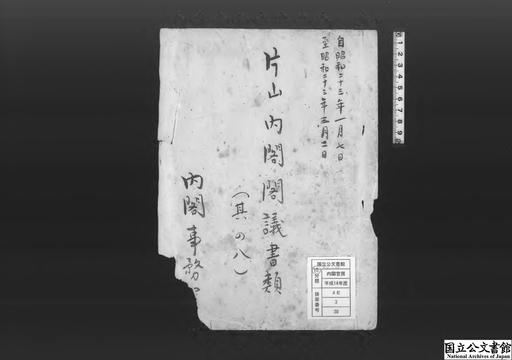 自昭和二十三年一月七日
至昭和二十三年三月二日
片山内閣閣議書類
(其の八)
内閣事務
国立公文書館
分類
内閣官房
平成14年度
4E
3
30
排架番号
国立公文書館
NATIONAL ARCHIVES OF JAPAN